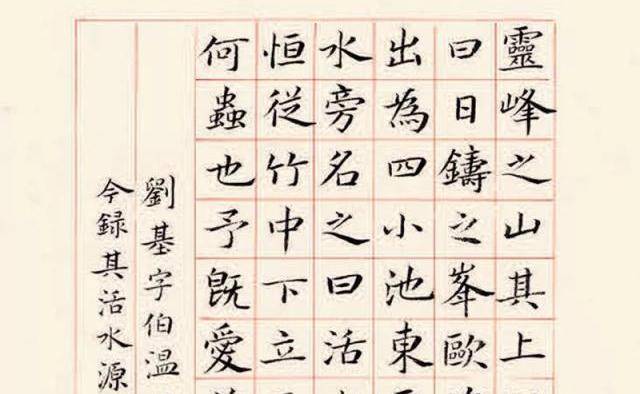 靈峰之山其上
曰日鑄之峯歐
出為四小池東
水旁名之曰活
恒從竹中下立
何蟲也予既愛
劉基字伯温
今録其活水源